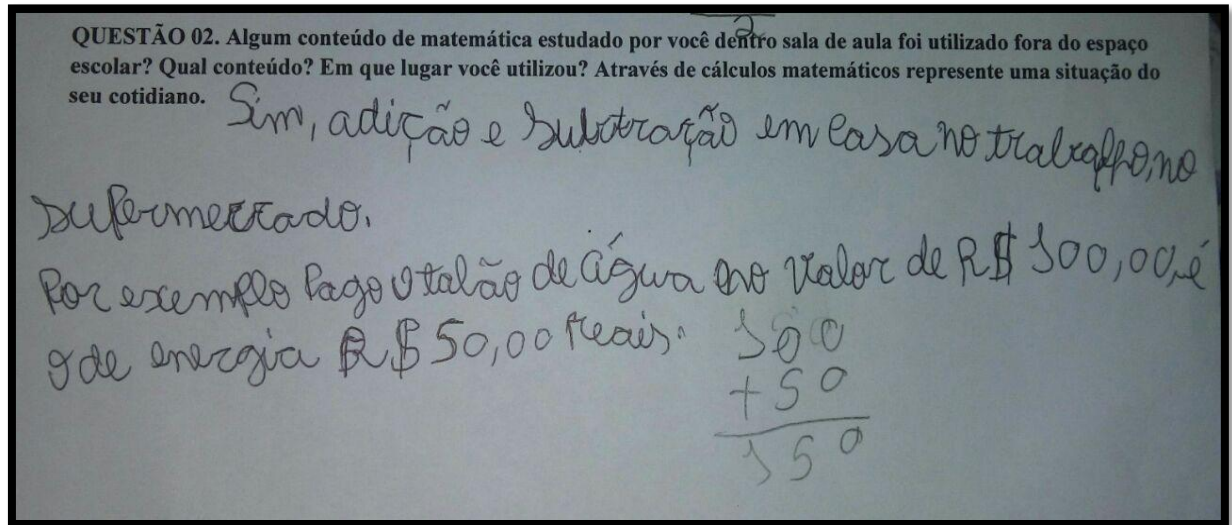 QUESTÃO 02. Algum conteúdo de matemática estudado por você dentro sala de aula foi utilizado fora do espaço
escolar? Qual conteúdo? Em que lugar você utilizou? Através de cálculos matemáticos represente uma situação do
seu cotidiano.
Sim, adição e subtração em casa no trabalho, no
supermercado.
Por exemplo pago o talão de água no valor de R$ 100,00, é
o de energia R$ 50,00 reais.
100
+ 50
150